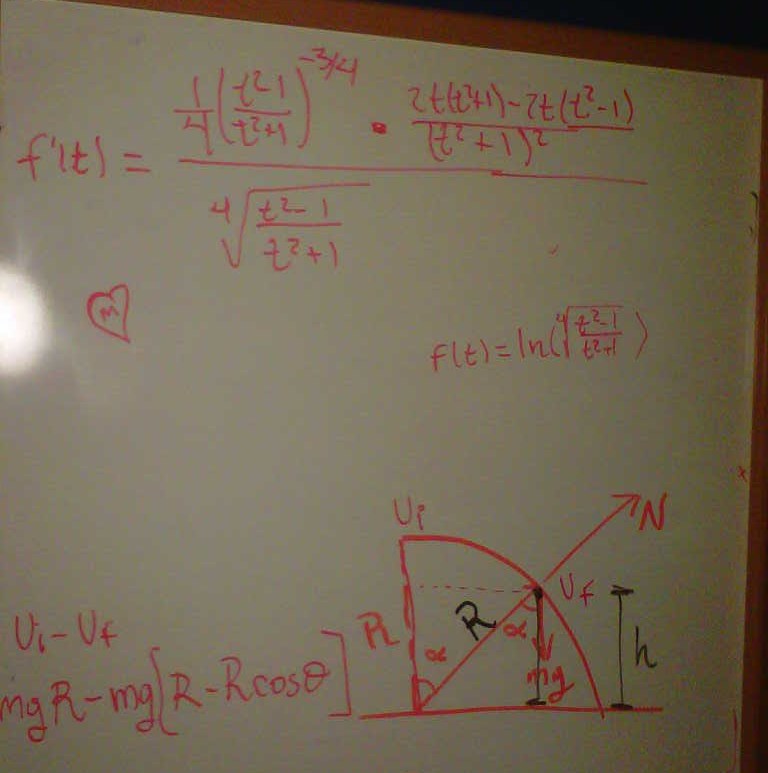 f'(t) = \frac{\frac{1}{4}\left(\frac{t^2-1}{t^2+1}\right)^{-3/4} \cdot \frac{2t(t^2+1)-2t(t^2-1)}{(t^2+1)^2}}{\sqrt[4]{\frac{t^2-1}{t^2+1}}}
m
f(t) = ln(\sqrt[4]{\frac{t^2-1}{t^2+1}})
Ui
N
Uf
R
R
α
α
mg
h
Ui - Uf
mgR - mg[R - Rcosθ]